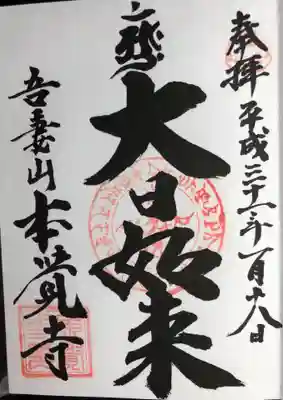 奉拝 平成三十一年一月十八日
大日如来
吾妻山 本覚寺